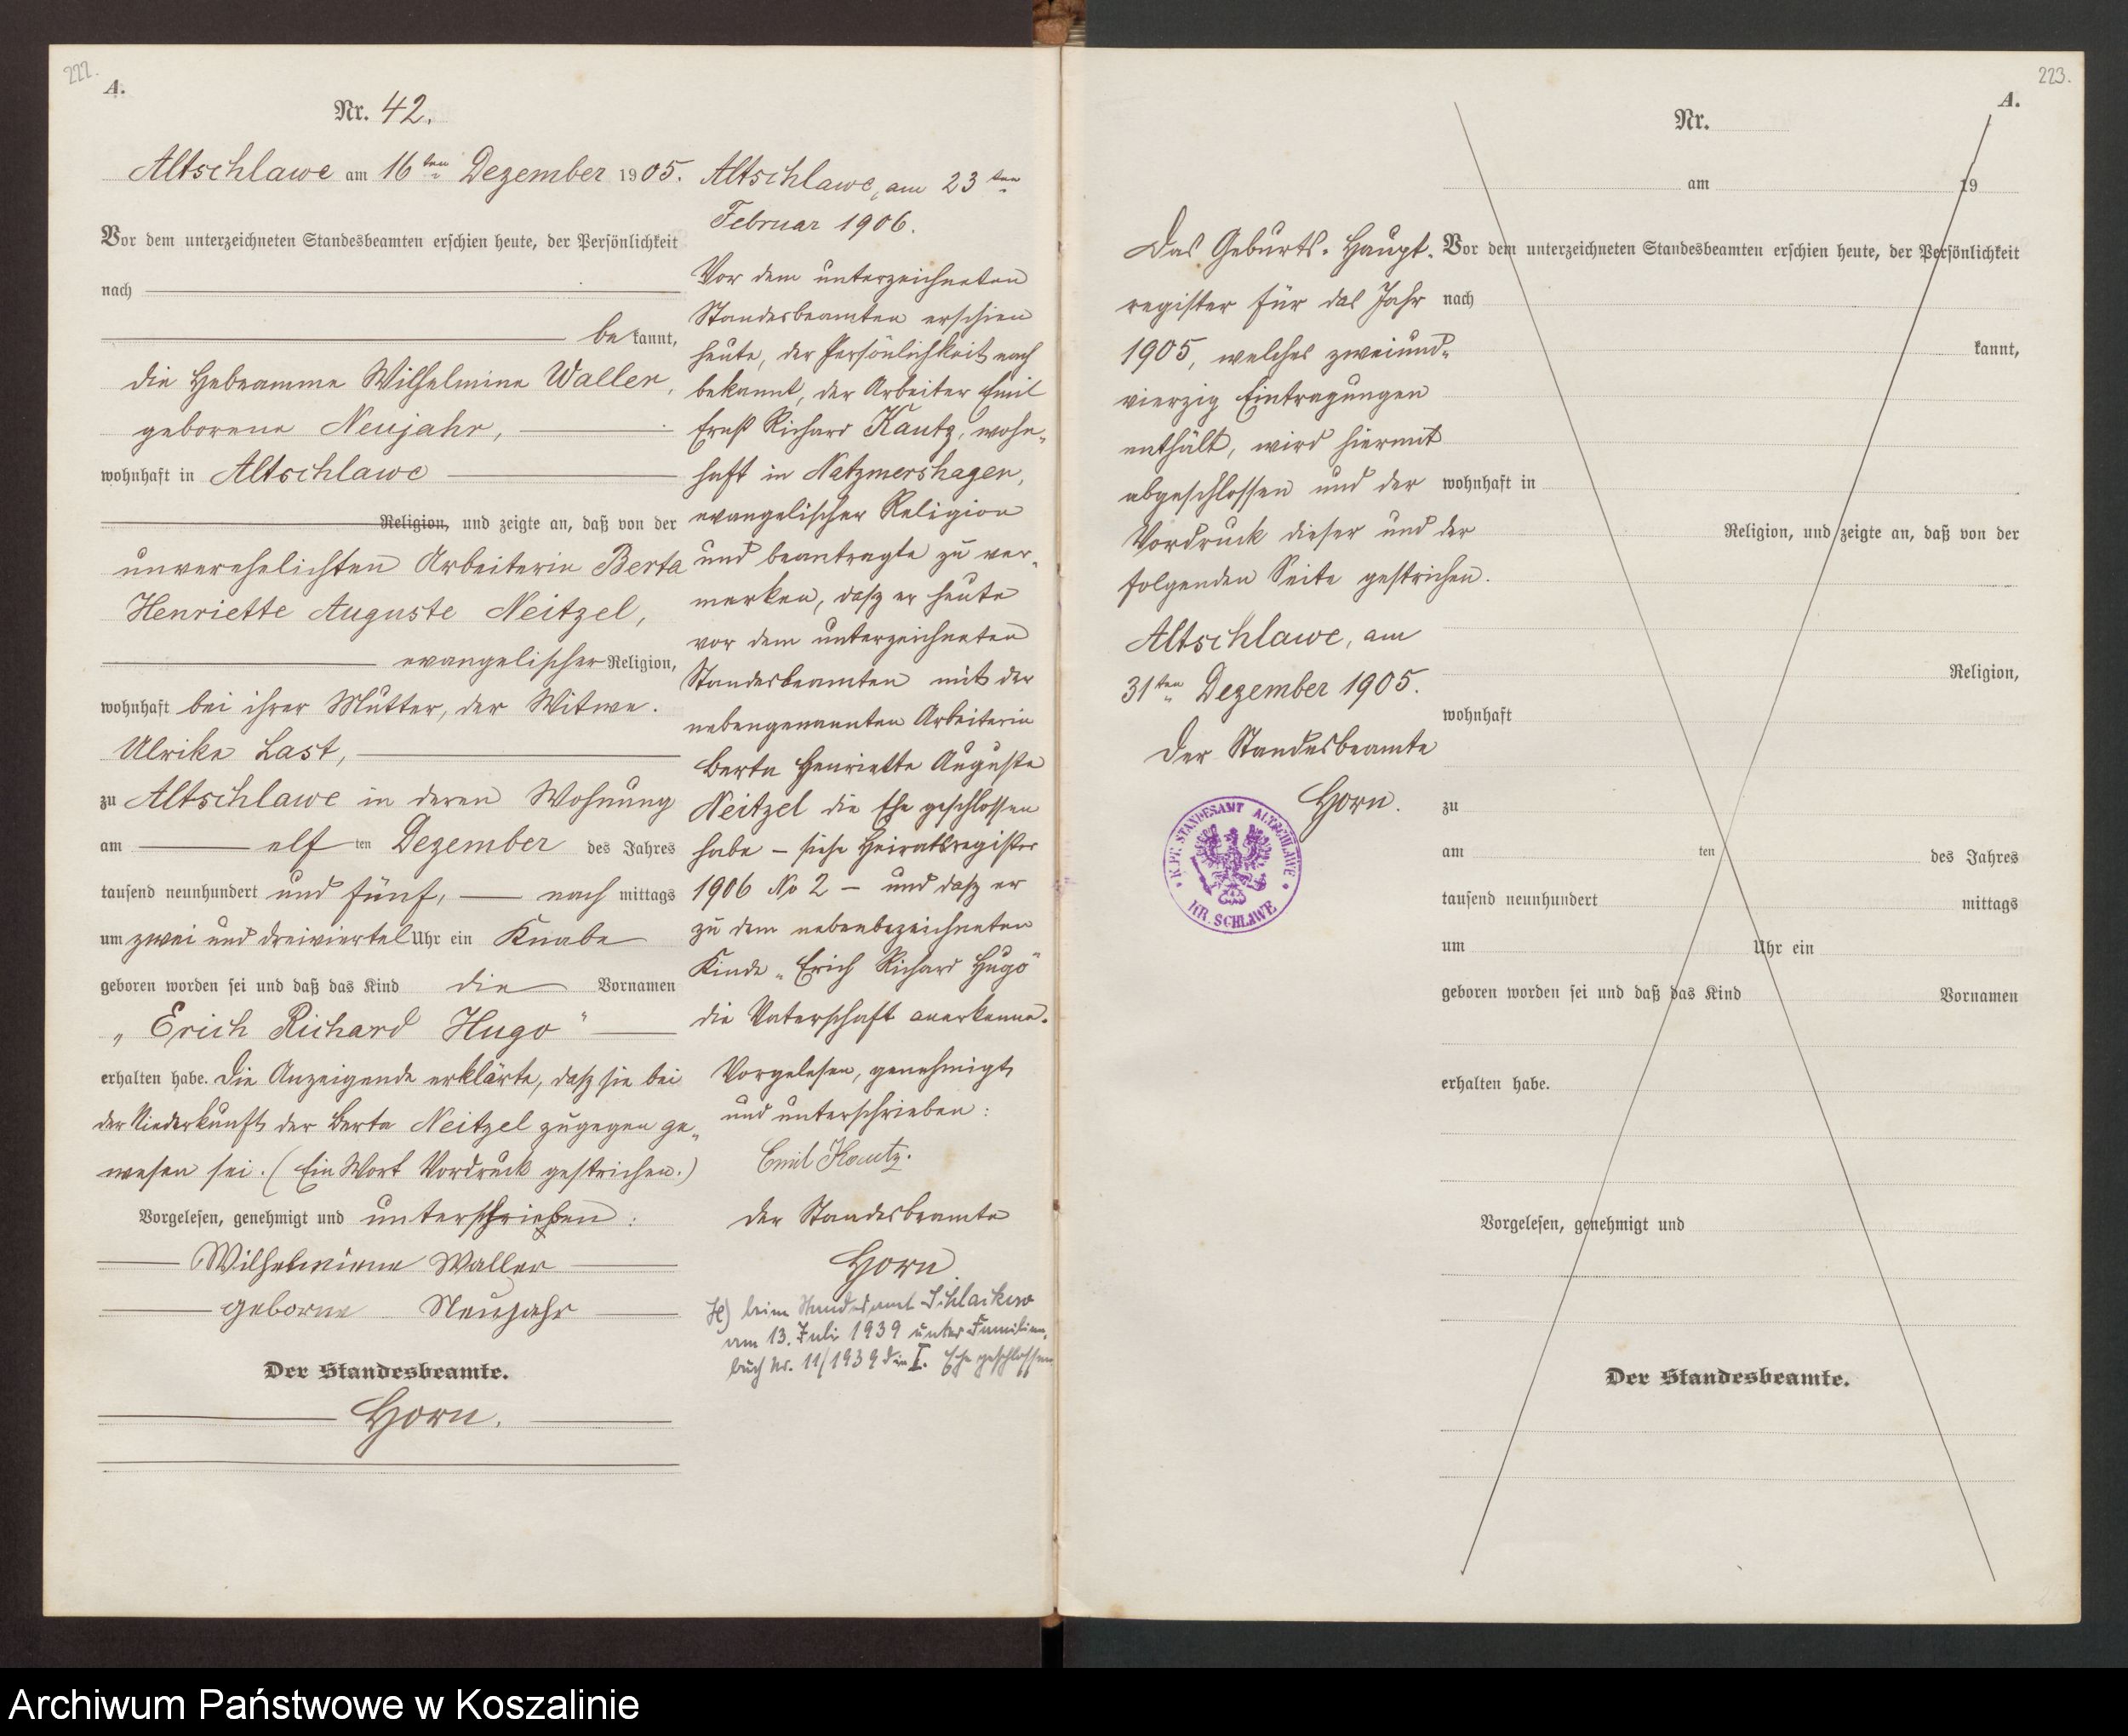 222.
A.
Nr. 42.
Altschlawe am 16ten Dezember 1905.
Vor dem unterzeichneten Standesbeamten erschien heute, der Persönlichkeit
nach
bekannt,
die Hebeamme Wilhelmine Waller,
geborene Neujahr,
wohnhaft in Altschlawe
Religion, und zeigte an, daß von der
unverehelichten Arbeiterin Berta
Henriette Auguste Neitzel,
evangelischer Religion,
wohnhaft bei ihrer Mutter, der Witwe
Ulrike Last,
zu Altschlawe in deren Wohnung
am elf ten Dezember des Jahres
tausend neunhundert und fünf, nach mittags
um zwei und dreiviertel Uhr ein Knabe
geboren worden sei und daß das Kind die Vornamen
„Erich Richard Hugo"
erhalten habe. Die Anzeigende erklärte, daß sie bei
der Niederkunft der Berta Neitzel zugegen ge-
wesen sei. (Ein Wort Vordruck gestrichen.)
Vorgelesen, genehmigt und unterschrieben:
Wilhelmine Waller
geborne Neujahr
Der Standesbeamte.
Horn.
Altschlawe, am 23ten
Februar 1906.
Vor dem unterzeichneten
Standesbeamten erschien
heute, der Persönlichkeit nach
bekannt, der Arbeiter Emil
Ernst Richard Kautz, wohn-
haft in Natzmershagen,
evangelischer Religion
und beantragte zu ver-
merken, daß er heute
vor dem unterzeichneten
Standesbeamten mit der
nebengenannten Arbeiterin
Berta Henriette Auguste
Neitzel die Ehe geschlossen
habe – siehe Heiratsregister
1906 No 2 – und daß er
zu dem nebenbezeichneten
Kinde „Erich Richard Hugo"
die Vaterschaft anerkenne.
Vorgelesen, genehmigt
und unterschrieben:
Emil Kautz.
Der Standesbeamte
Horn
beim Standesamt Schlackow
am 13. Juli 1939 unter Familien-
buch Nr. 11/1939 die I. Ehe geschlossen
223.
A.
Das Geburts-Haupt-
register für das Jahr
1905, welches zweiund-
vierzig Eintragungen
enthält, wird hiermit
abgeschlossen und der
Vordruck dieser und der
folgenden Seite gestrichen.
Altschlawe, am
31ten Dezember 1905.
Der Standesbeamte
Horn.
K. PR. STANDESAMT ALTSCHLAWE
KR. SCHLAWE
Nr.
am 19
Vor dem unterzeichneten Standesbeamten erschien heute, der Persönlichkeit
nach
kannt,
wohnhaft in
Religion, und zeigte an, daß von der
Religion,
wohnhaft
zu
am ten des Jahres
tausend neunhundert mittags
um Uhr ein
geboren worden sei und daß das Kind Vornamen
erhalten habe.
Vorgelesen, genehmigt und
Der Standesbeamte.
Archiwum Państwowe w Koszalinie